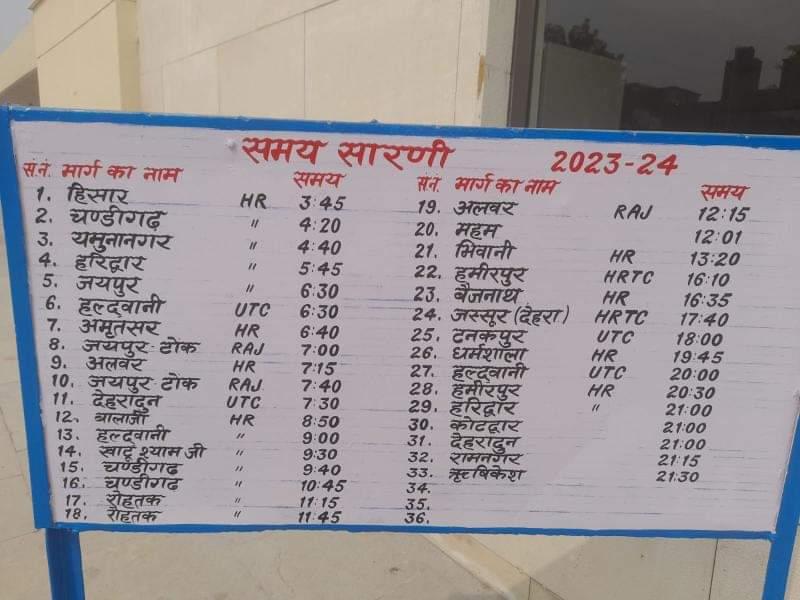 समय सारणी 2023-24
सं.नं. मार्ग का नाम समय
1. हिसार HR 3:45
2. चण्डीगढ़ " 4:20
3. यमुनानगर " 4:40
4. हरिद्वार " 5:45
5. जयपुर " 6:30
6. हल्द्वानी UTC 6:30
7. अमृतसर HR 6:40
8. जयपुर-टोंक RAJ 7:00
9. अलवर HR 7:15
10. जयपुर-टोंक RAJ 7:40
11. देहरादुन UTC 7:30
12. बालाजी HR 8:50
13. हल्द्वानी " 9:00
14. खाटू श्याम जी " 9:30
15. चण्डीगढ़ " 9:40
16. चण्डीगढ़ " 10:45
17. रोहतक " 11:15
18. रोहतक " 11:45
सं.नं. मार्ग का नाम समय
19. अलवर RAJ 12:15
20. महम 12:01
21. भिवानी HR 13:20
22. हमीरपुर HRTC 16:10
23. बैजनाथ HR 16:35
24. जस्सूर (देहरा) HRTC 17:40
25. टनकपुर UTC 18:00
26. धर्मशाला HR 19:45
27. हल्द्वानी UTC 20:00
28. हमीरपुर HR 20:30
29. हरिद्वार " 21:00
30. कोटद्वार 21:00
31. देहरादुन 21:00
32. रामनगर 21:15
33. ऋषिकेश 21:30
34.
35.
36.